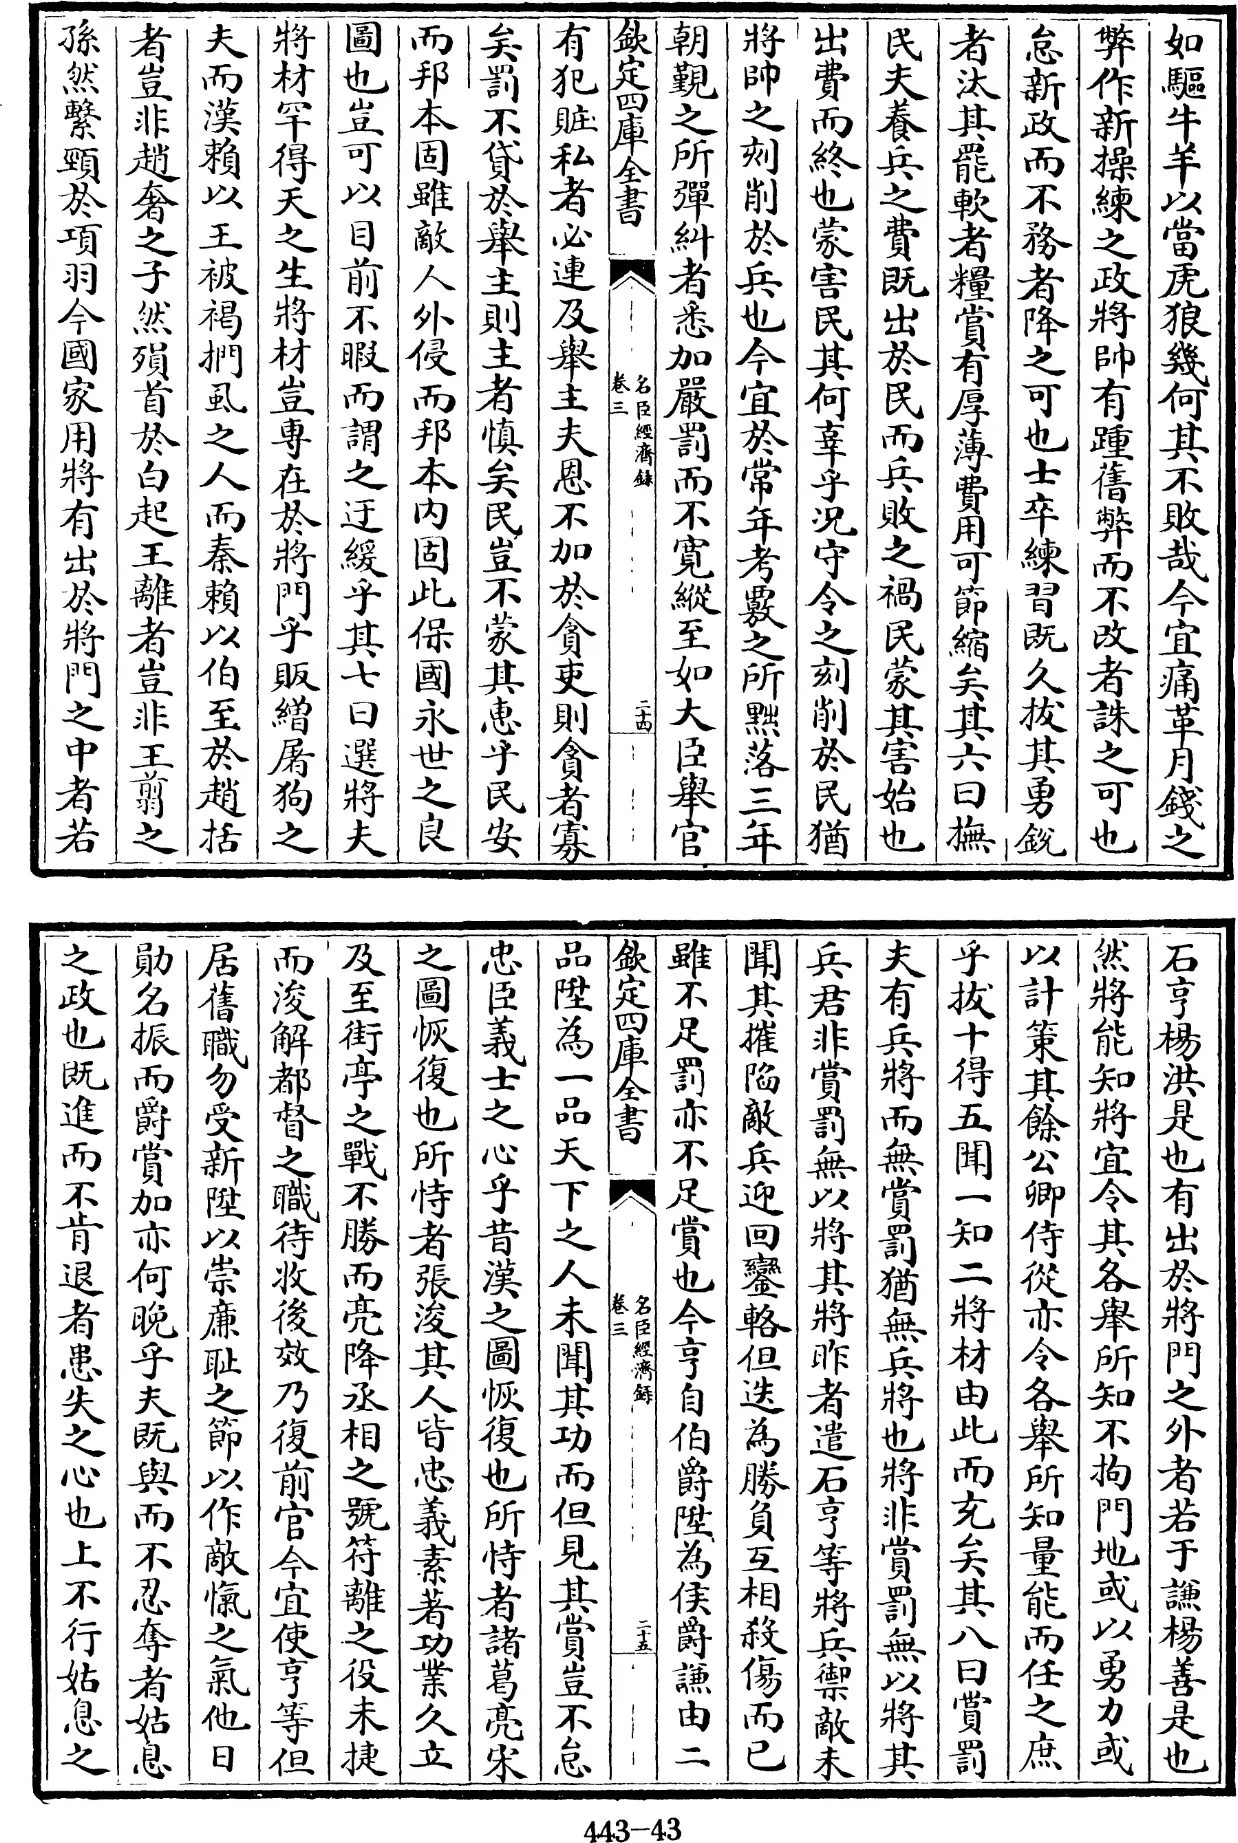 如驅牛羊以當虎狼幾何其不敗哉今宜痛革月錢之
弊作新操練之政將帥有踵舊弊而不改者誅之可也
怠新政而不務者降之可也士卒練習既久拔其勇銳
者汰其罷軟者糧賞有厚薄費用可節縮矣其六曰撫
民夫養兵之費既出於民而兵敗之禍民蒙其害始也
出費而終也蒙害民其何辜乎况守令之刻削於民猶
將帥之刻削於兵也今宜於常年考覈之所黜落三年
朝覲之所彈糾者悉加嚴罰而不寬縱至如大臣舉官
欽定四庫全書
名臣經濟錄
卷三
二十四
有犯賍私者必連及舉主夫恩不加於貪吏則貪者寡
矣罰不貸於舉主則主者慎矣民豈不蒙其惠乎民安
而邦本固雖敵人外侵而邦本内固此保國永世之良
圖也豈可以目前不暇而謂之迂緩乎其七曰選將夫
將材罕得天之生將材豈專在於將門乎販繒屠狗之
夫而漢賴以王被褐捫虱之人而秦賴以伯至於趙括
者豈非趙奢之子然殞首於白起王離者豈非王翦之
孫然繫頸於項羽今國家用將有出於將門之中者若
石亨楊洪是也有出於將門之外者若于謙楊善是也
然將能知將宜令其各舉所知不拘門地或以勇力或
以計策其餘公卿侍從亦令各舉所知量能而任之庶
乎拔十得五聞一知二將材由此而充矣其八曰賞罰
夫有兵將而無賞罰猶無兵將也將非賞罰無以將其
兵君非賞罰無以將其將昨者遣石亨等將兵禦敵未
聞其摧陷敵兵迎回鑾輅但迭為勝負互相殺傷而已
雖不足罰亦不足賞也今亨自伯爵陞為侯爵謙由二
欽定四庫全書
名臣經濟錄
卷三
二十五
品陞為一品天下之人未聞其功而但見其賞豈不怠
忠臣義士之心乎昔漢之圖恢復也所恃者諸葛亮宋
之圖恢復也所恃者張浚其人皆忠義素著功業久立
及至街亭之戰不勝而亮降丞相之號符離之役未捷
而浚解都督之職待收後效乃復前官今宜使亨等但
居舊職勿受新陞以崇廉恥之節以作敵愾之氣他日
勛名振而爵賞加亦何晚乎夫既與而不忍奪者姑息
之政也既進而不肯退者患失之心也上不行姑息之
443-43